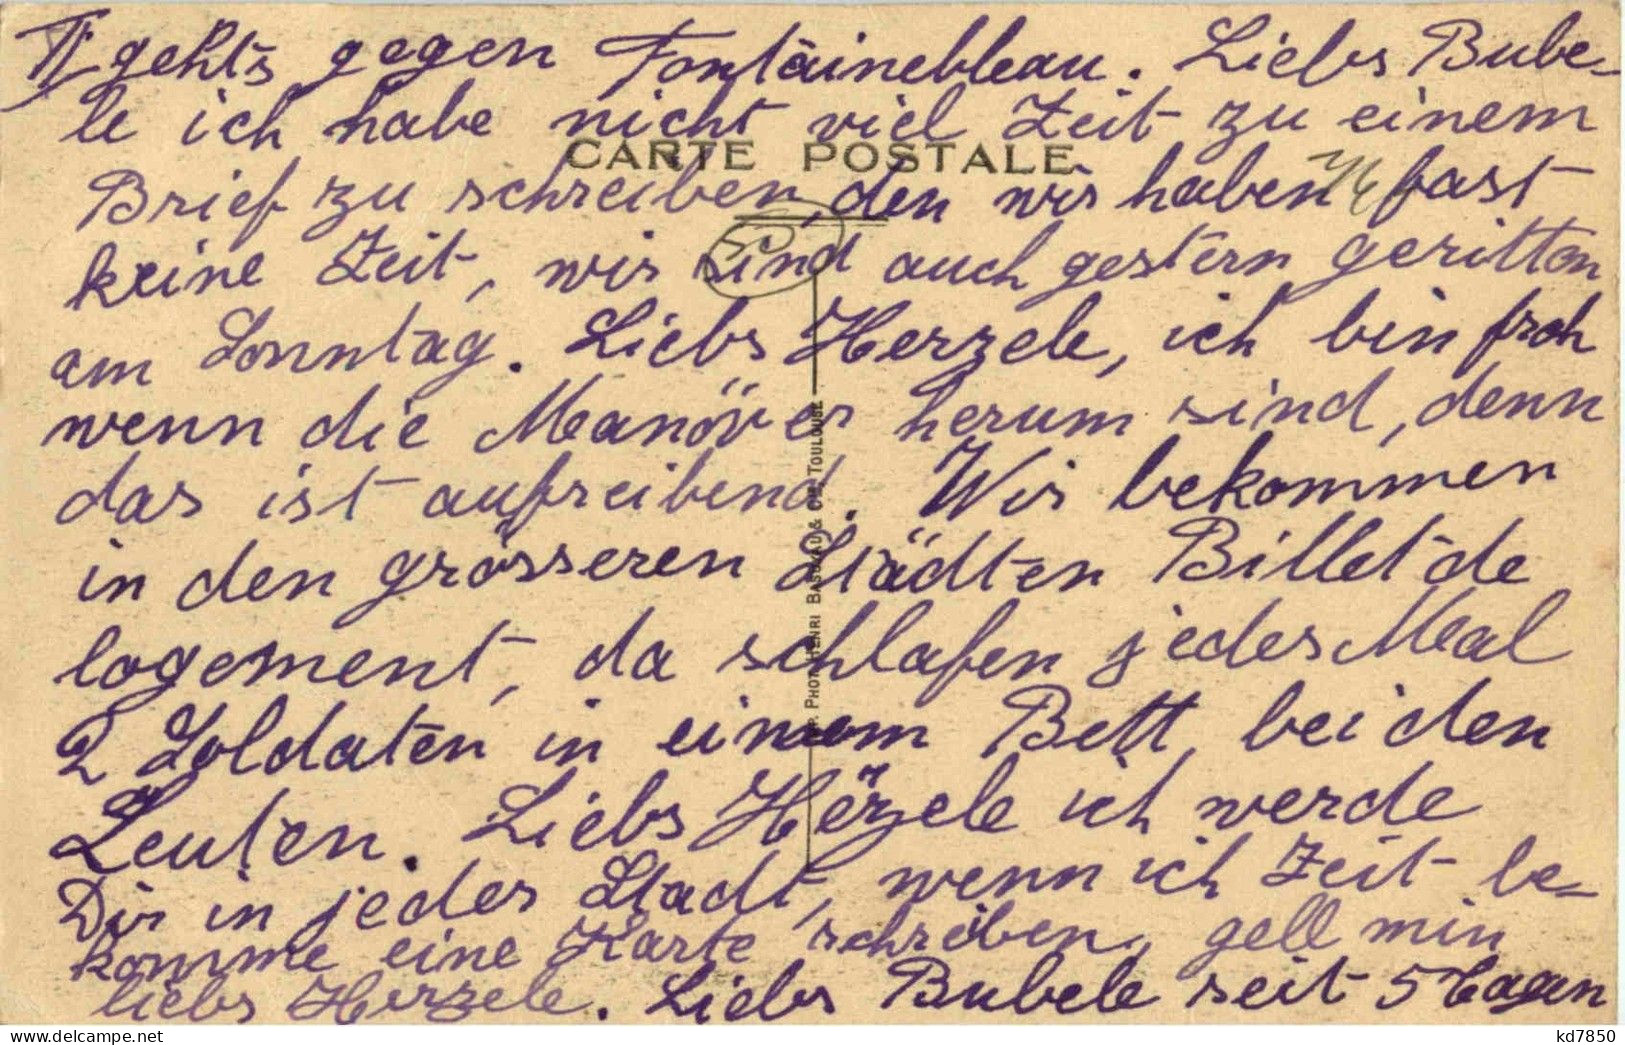 II gehts gegen Fontainebleau. Liebs Bube-
le ich habe nicht viel Zeit zu einem
CARTE POSTALE
Brief zu schreiben, den wir haben fast
keine Zeit, wir sind auch gestern geritten
am Sonntag. Liebs Herzele, ich bin froh
wenn die Manöver herum sind, denn
das ist aufreibend. Wir bekommen
in den grösseren Städten Billet de
logement, da schlafen jedes Mal
2 Soldaten in einem Bett, bei den
Leuten. Liebs Herzele ich werde
Dir in jeder Stadt, wenn ich Zeit be-
komme eine Karte schreiben, gell min
liebs Herzele. Liebs Bubele seit 5 Tagen
PHOT. HENRI BASUYAU & CIE TOULOUSE
kd7850